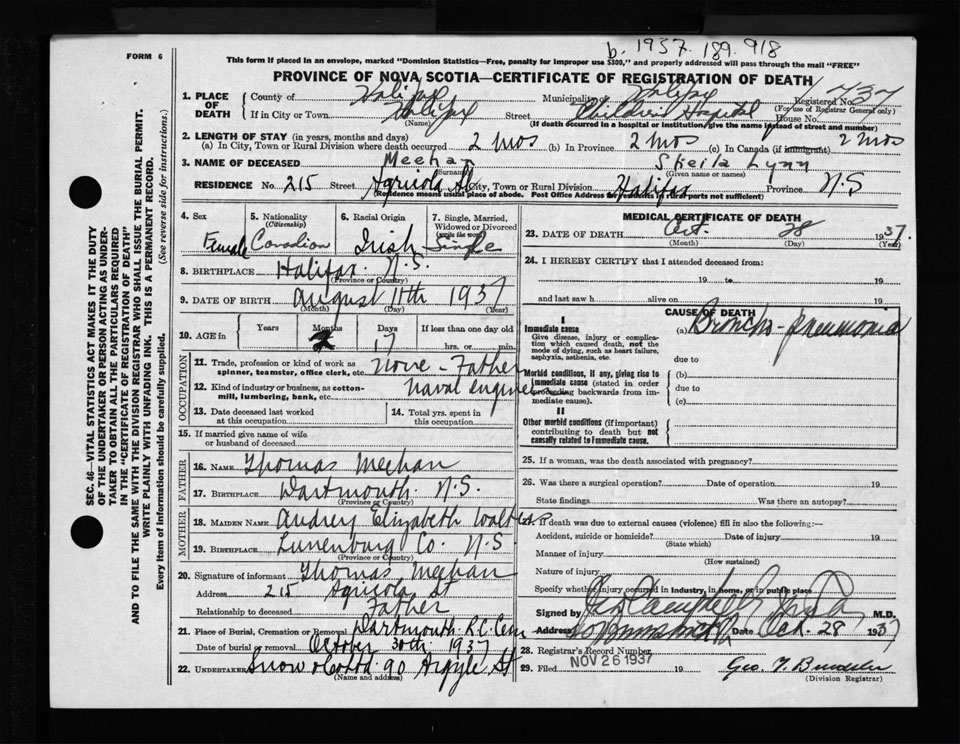 b. 1937. 189. 918
FORM 6
This form if placed in an envelope, marked "Dominion Statistics—Free, penalty for improper use $300," and properly addressed will pass through the mail "FREE"
PROVINCE OF NOVA SCOTIA—CERTIFICATE OF REGISTRATION OF DEATH
SEC. 46—VITAL STATISTICS ACT MAKES IT THE DUTY
OF THE UNDERTAKER OR PERSON ACTING AS UNDER-
TAKER TO OBTAIN ALL THE PARTICULARS REQUIRED
IN THE "CERTIFICATE OF REGISTRATION OF DEATH"
AND TO FILE THE SAME WITH THE DIVISION REGISTRAR WHO SHALL ISSUE THE BURIAL PERMIT.
WRITE PLAINLY WITH UNFADING INK. THIS IS A PERMANENT RECORD.
Every item of information should be carefully supplied. (See reverse side for instructions.)
1. PLACE OF DEATH County of Halifax Municipality of Halifax Registered No. 737
(For use of Registrar General only)
If in City or Town Halifax Street Children's Hospital House No.
(Name) (If death occurred in a hospital or institution, give the name instead of street and number)
2. LENGTH OF STAY (in years, months and days)
(a) In City, Town or Rural Division where death occurred 2 mos (b) In Province 2 mos (c) In Canada (if immigrant) 2 mos
3. NAME OF DECEASED Meehan Sheila Lynn
(Surname) (Given name or names)
RESIDENCE No. 215 Street Agricola St City, Town or Rural Division Halifax Province N.S
(Residence means usual place of abode. Post Office Address for residents in rural parts not sufficient)
4. Sex Female
5. Nationality (Citizenship) Canadian
6. Racial Origin Irish
7. Single, Married, Widowed or Divorced (write the word) Single
8. BIRTHPLACE Halifax. N.S.
(Province or Country)
9. DATE OF BIRTH August 11th 1937
(Month) (Day) (Year)
10. AGE IN Years Months 2 Days 17 If less than one day old hrs. or min.
OCCUPATION
11. Trade, profession or kind of work as spinner, teamster, office clerk, etc. None - Father
12. Kind of industry or business, as cotton-mill, lumbering, bank, etc. Naval engineer
13. Date deceased last worked at this occupation
14. Total yrs. spent in this occupation
15. If married give name of wife or husband of deceased
FATHER
16. NAME Thomas Meehan
17. BIRTHPLACE Dartmouth. N.S.
(Province or Country)
MOTHER
18. MAIDEN NAME Audrey Elizabeth Walters
19. BIRTHPLACE Lunenburg Co. N.S
(Province or Country)
20. Signature of informant Thomas Meehan
Address 215 Agricola St
Relationship to deceased Father
21. Place of Burial, Cremation or Removal Dartmouth. R.C. Cem
Date of burial or removal October 30th 1937
22. UNDERTAKER Snow & Co Ltd. 90 Argyle St
(Name and address)
MEDICAL CERTIFICATE OF DEATH
23. DATE OF DEATH Oct. 28 1937.
(Month) (Day) (Year)
24. I HEREBY CERTIFY that I attended deceased from:
19 to 19
and last saw h alive on 19
CAUSE OF DEATH
I
Immediate cause (a) Broncho-pneumonia
Give disease, injury or complication which caused death, not the mode of dying, such as heart failure, asphyxia, asthenia, etc.
due to
Morbid conditions, if any, giving rise to immediate cause (stated in order proceeding backwards from immediate cause).
(b)
due to
(c)
II
Other morbid conditions (if important) contributing to death but not causally related to immediate cause.
25. If a woman, was the death associated with pregnancy?
26. Was there a surgical operation? Date of operation 19
State findings Was there an autopsy?
27. If death was due to external causes (violence) fill in also the following:—
Accident, suicide or homicide? Date of injury 19
(State which)
Manner of injury
(How sustained)
Nature of injury
Specify whether injury occurred in industry, in home, or in public place
Signed by M.D.
Address Date Oct. 28 1937
28. Registrar's Record Number
NOV 26 1937
29. Filed 19 Geo.
(Division Registrar)